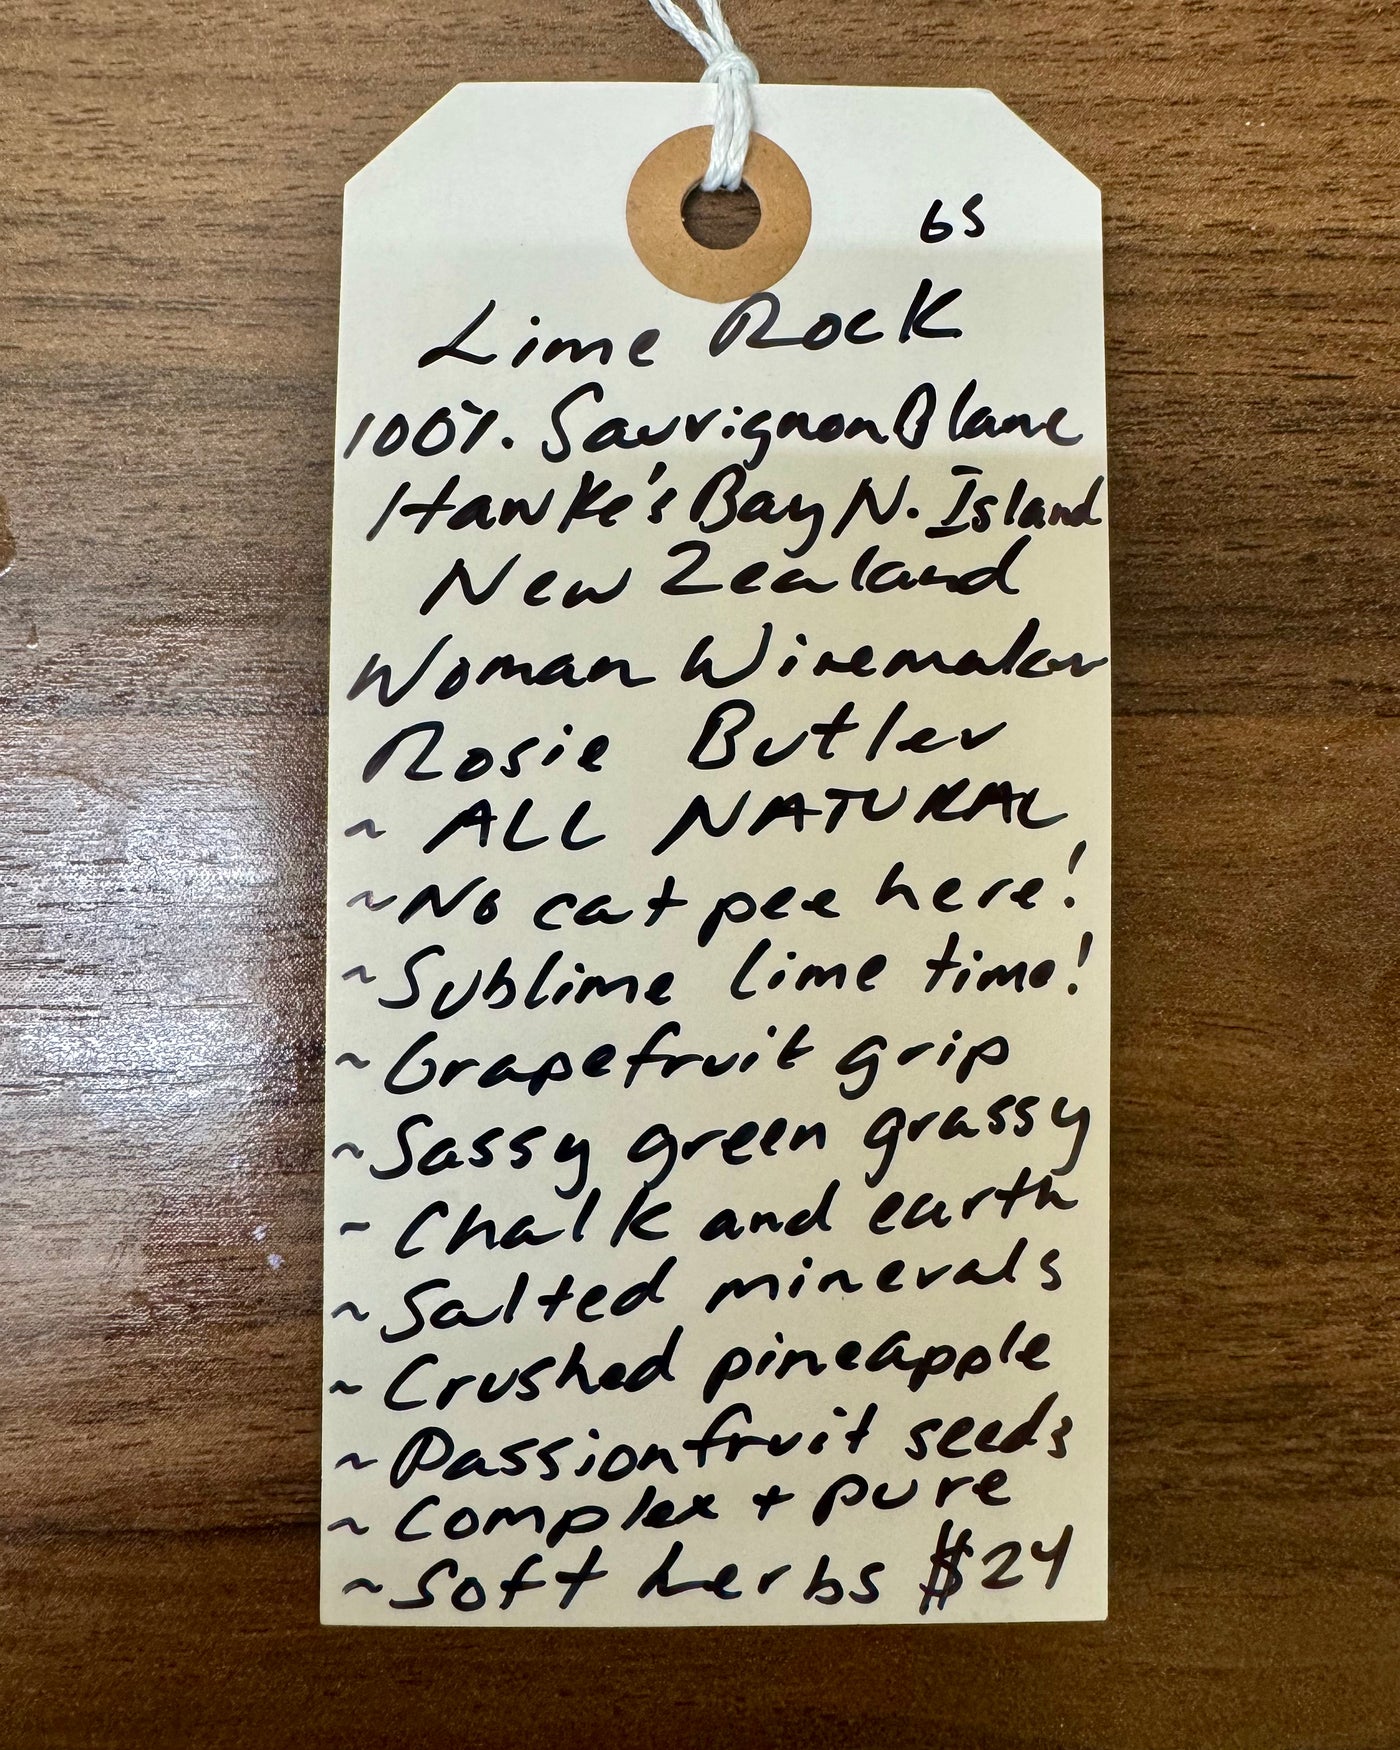 65
Lime Rock
100%. Sauvignon Blanc
Hawke's Bay N. Island
New Zealand
Woman Winemaker
Rosie Butler
~ ALL NATURAL
~ No cat pee here!
~ Sublime lime time!
~ Grapefruit grip
~ Sassy green grassy
~ Chalk and earth
~ Salted minerals
~ Crushed pineapple
~ Passionfruit seeds
~ Complex + pure
~ Soft herbs $24